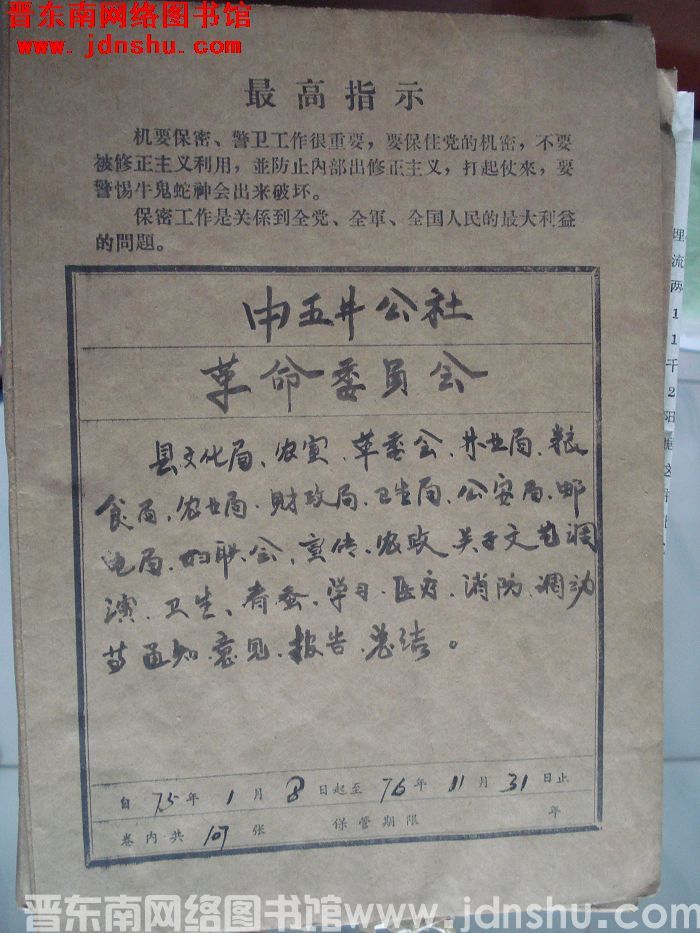 晋东南网络图书馆
www.jdnshu.com
最高指示
机要保密、警卫工作很重要，要保住党的机密，不要
被修正主义利用，並防止內部出修正主义，打起仗來，要
警惕牛鬼蛇神会出来破坏。
保密工作是关係到全党、全軍、全国人民的最大利益
的問題。
由五井公社
革命委员会
县文化局、农宣、革委会、林业局、粮
食局、农业局、财政局、卫生局、公安局、邮
电局、妇联会、宣传、农政关于文艺调
演、卫生、春蚕、学习、医疗、消防、调动
等通知、意见、报告、总结。
自 75 年 1 月 8 日起至 76 年 11 月 31 日止
卷内共 107 张 保管期限 年
理
流
两
1
1
千
2
阳
这
晋东南网络图书馆www.jdnshu.com